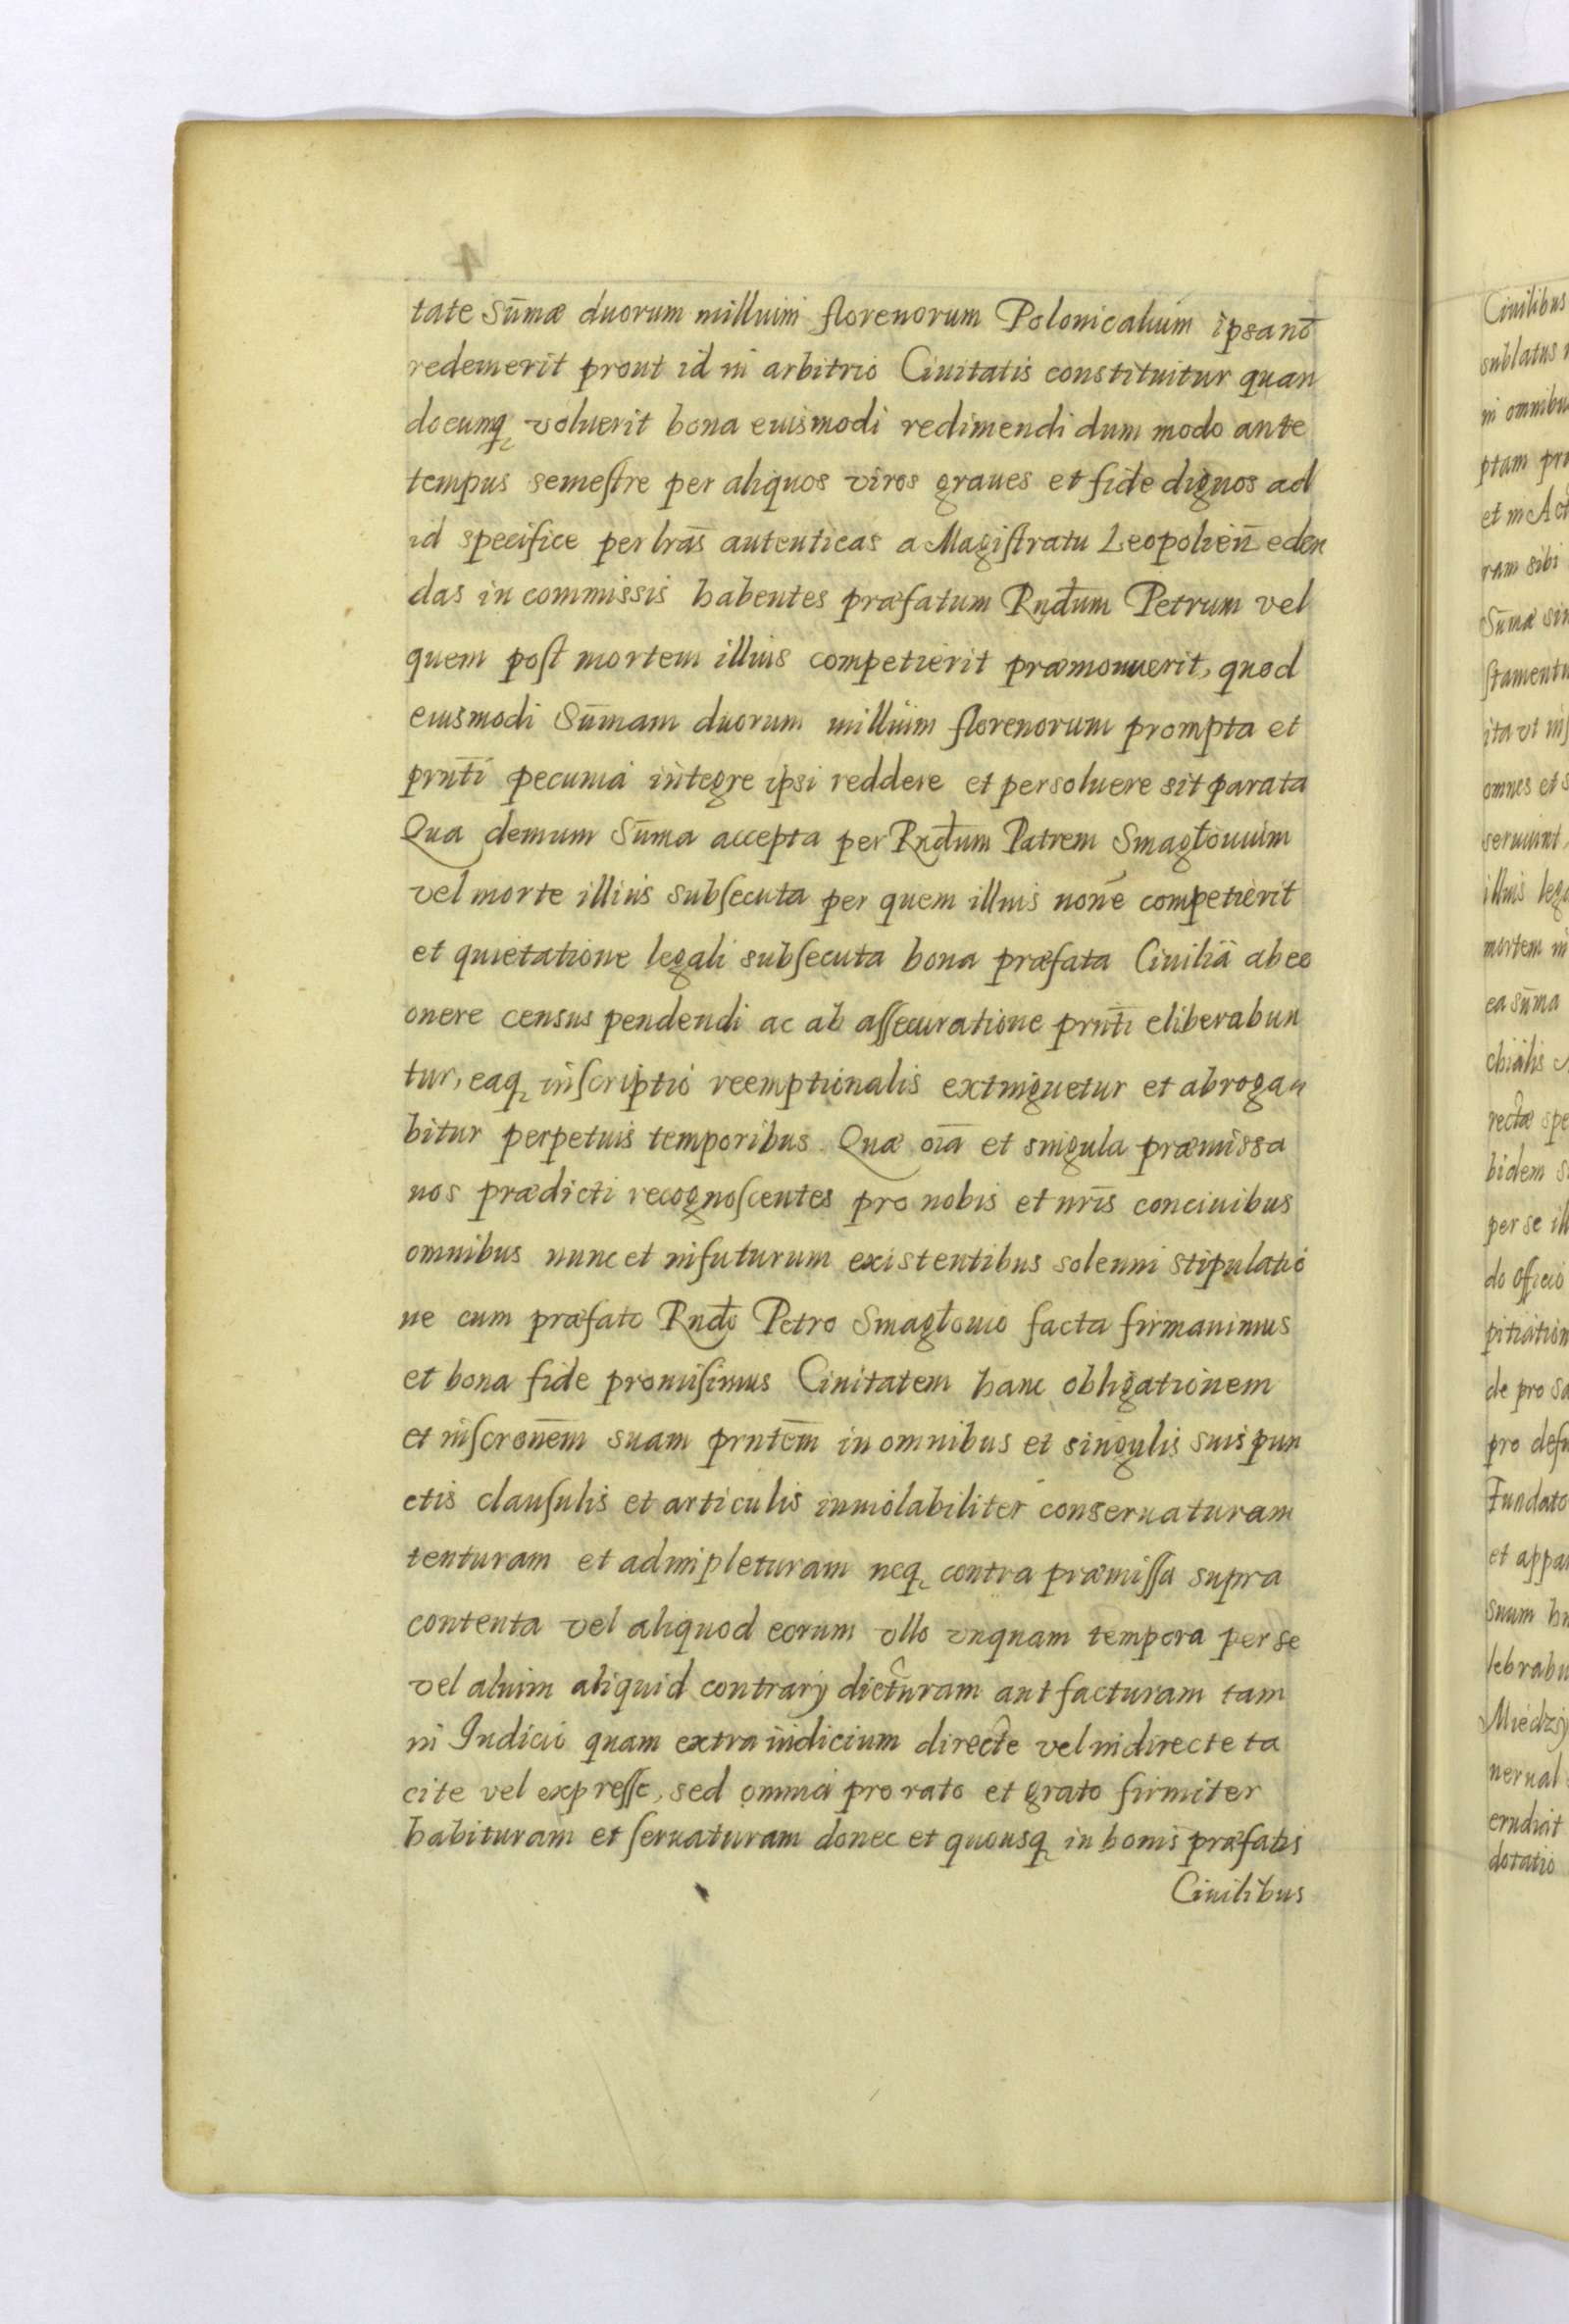 tate Sum̄æ duorum millium florenorum Polonicalium ipsa nō
redemerit prout id in arbitrio Ciuitatis constituitur quan
documq voluerit bona euismodi redimendi dum modo ante
tempus semestre per aliquos viros graues et fide dignos ad
id specifice per lrās autenticas a Magistratu Leopolien̄ eden
das in commissis habentes præfatum Rndum Petrum vel
quem post mortem illius competierit præmonuerit, quod
eiusmodi Sum̄am duorum millium florenorum prompta et
prn̄ti pecunia integre ipsi reddere et persoluere sit parata
Qua demum Sum̄a accepta per Rndum Patrem Smagłouium
vel morte illius subsecuta per quem illius nomē competierit
et quietatione legali subsecuta bona præfata Ciuilia ab eo
onere census pendendi ac ab assecuratione prn̄ti eliberabun
tur, eaq inscriptio reemptionalis extinguetur et abrogan
bitur perpetuis temporibus. Quæ oīa et singula præmissa
nos prædicti recognoscentes pro nobis et nr̄is conciuibus
omnibus nunc et in futurum existentibus solenni stipulatio
ne cum præfato Rndo Petro Smagłouio facta firmauimus
et bona fide promisimus Ciuitatem hanc obligationem
et inscronēm suam prntēm in omnibus et singulis suis pun
ctis clausulis et articulis inuiolabiliter conseruaturam
tenturam et adimpleturam neq contra præmissa supra
contenta vel aliquod eorum vllo vnquam tempora per se
vel alium aliquid contrarij dicturam aut facturam tam
in Iudicio quam extra iudicium directe vel indirecte ta
cite vel expresse, sed omnia pro rato et grato firmiter
habituram et seruaturam donec et quousq in bonis præfatis
Ciuilibus
Ciuilibus
sublatus
in omnibu
ptam
et in Act
ram sibi
Sum̄æ sin
stamentu
ita vt
omnes et s
seruiunt
illius lega
mortem in
ea sum̄a
chialis
rectæ spe
bidem
per se ill
do officio
pitiation
de pro sa
pro defu
Fundato
et appa
suum
lebrabu
Miedzy
nerual
erudiat
dotatio